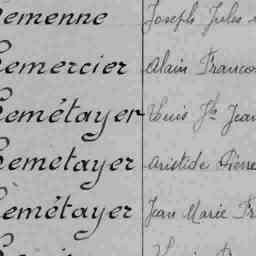 Lemenne Joseph Jules
Lemercier Alain Francois
Lemétayer Louis Jh Jean
Lemetayer Aristide Pierre
Lemétayer Jean Marie Fr